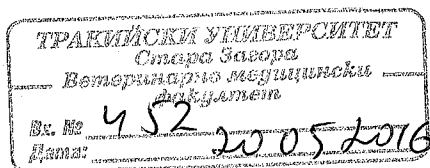 ТРАКИЙСКИ УНИВЕРСИТЕТ
Стара Загора
Ветеринарно медицински
факултет
Вх. № 452
Дата: 20 05 2016